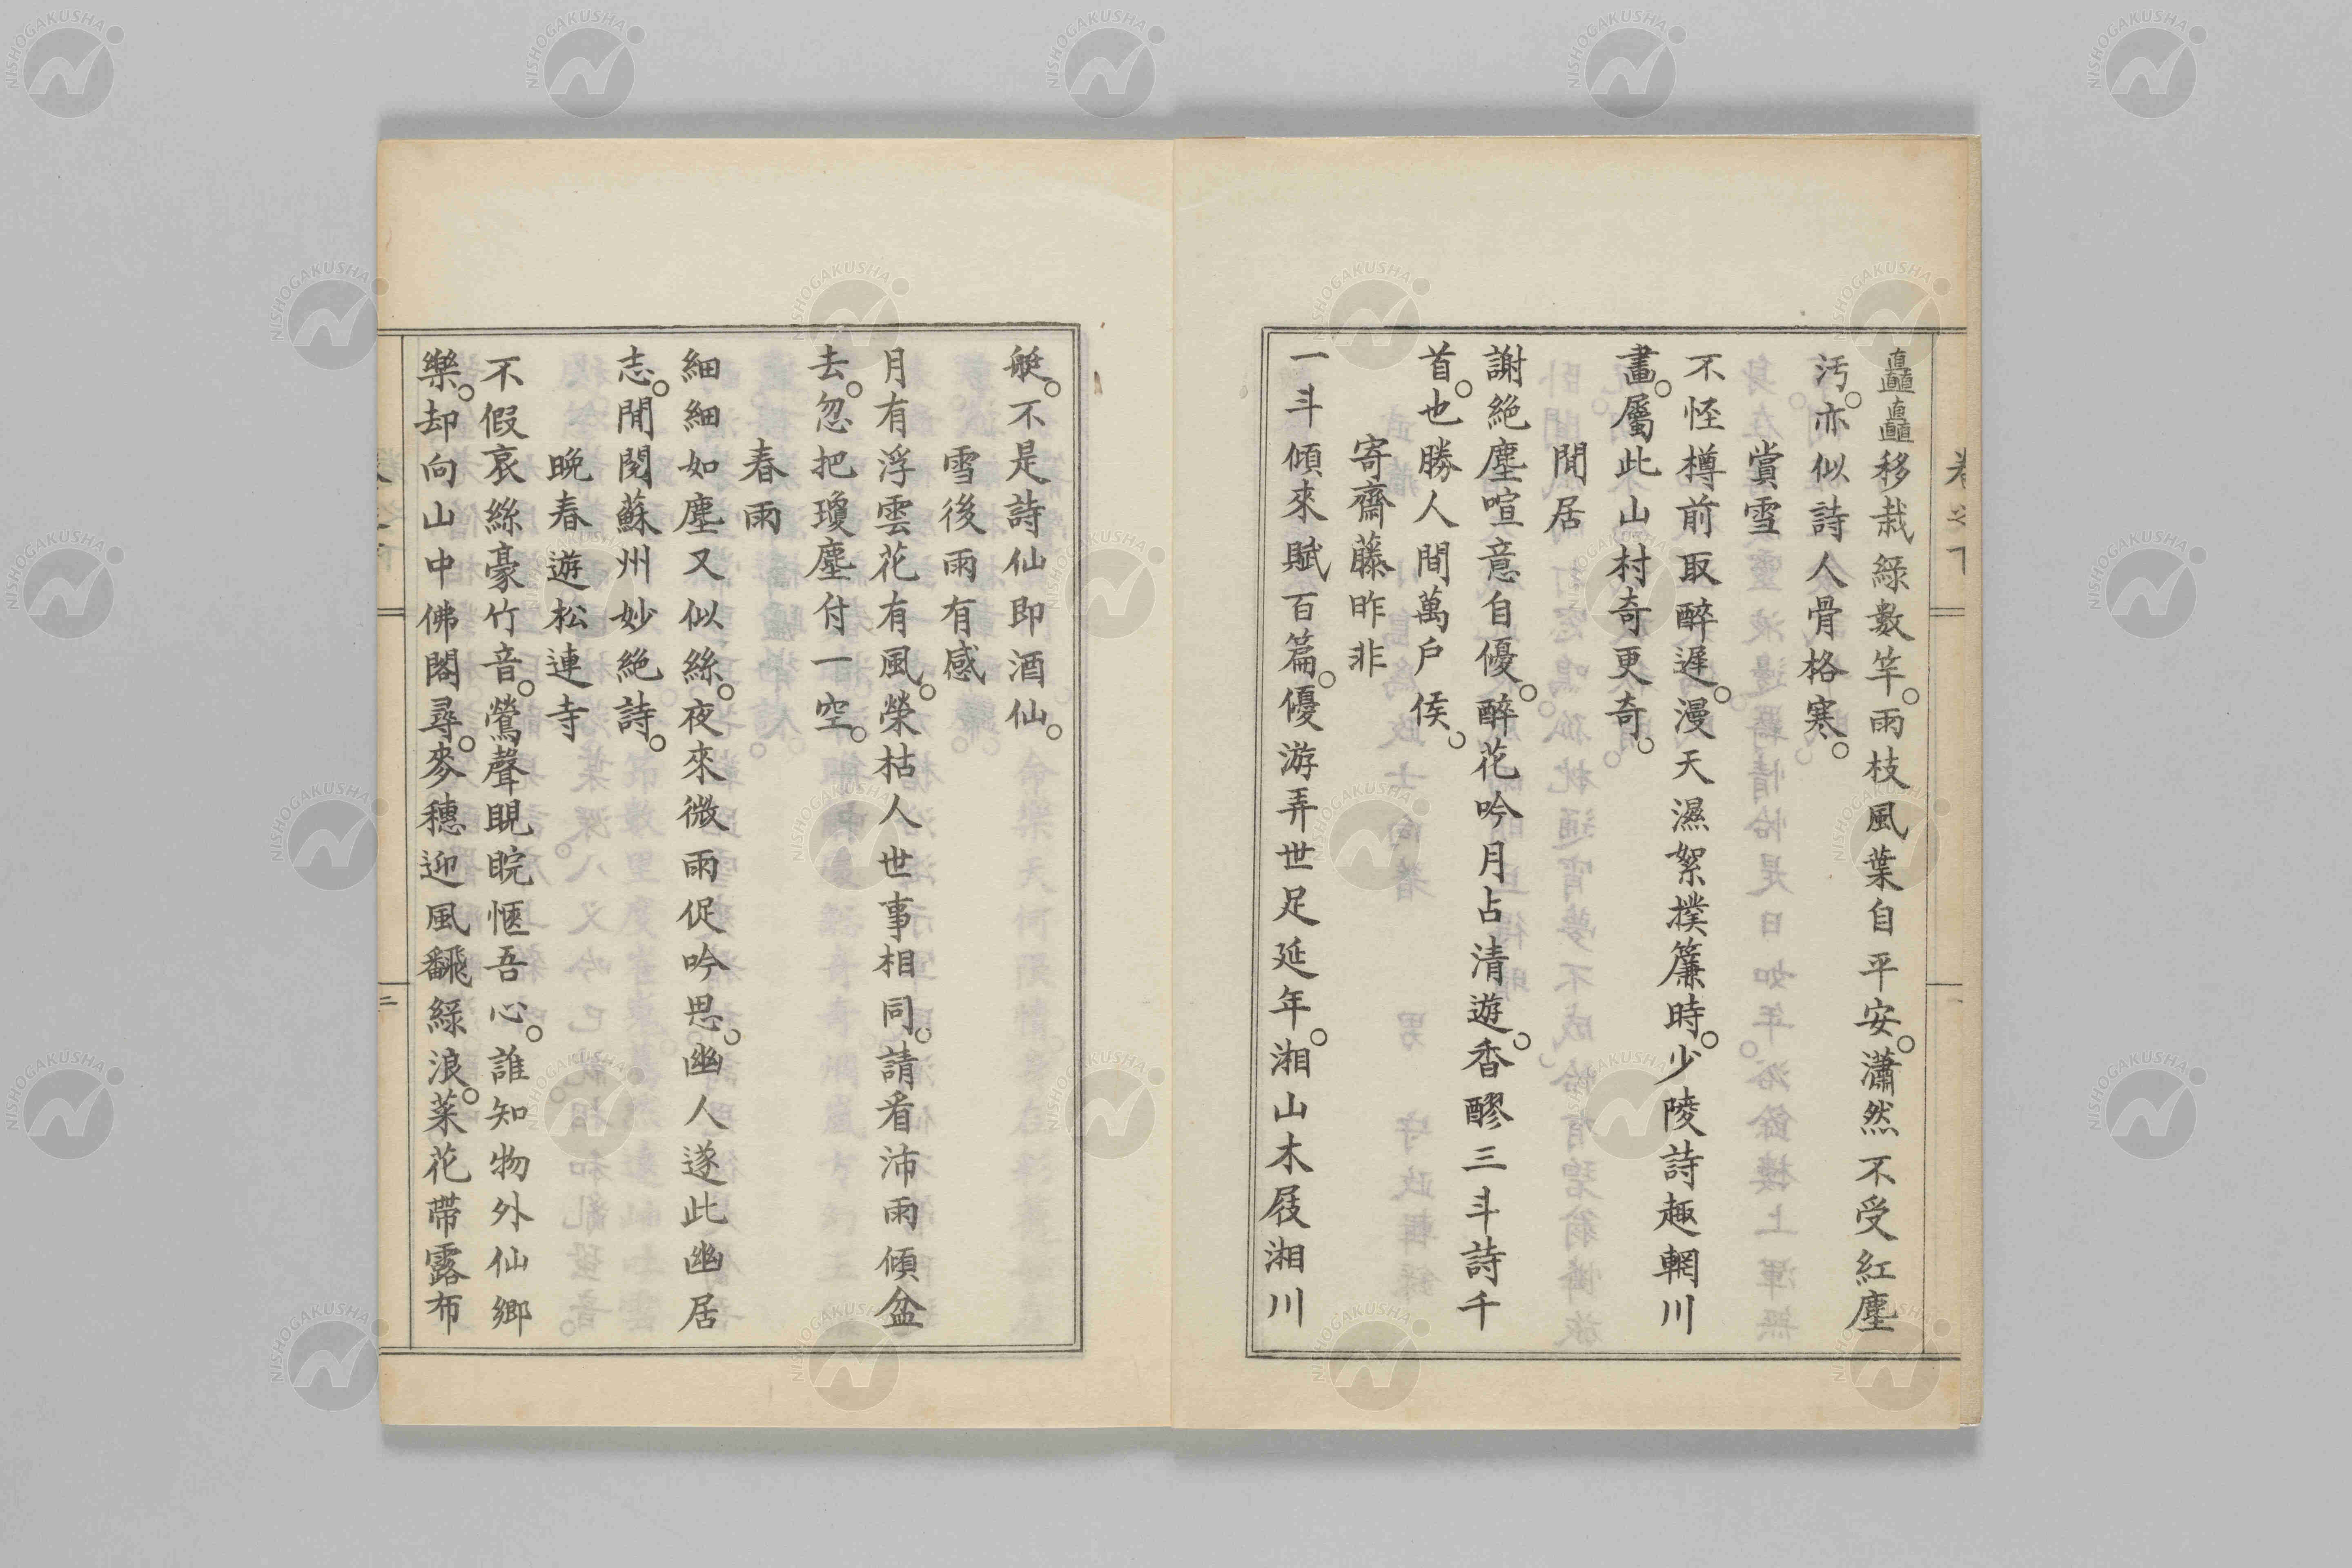 矗矗移栽綠數竿。雨枝風葉自平安。瀟然不受紅塵
汚。亦似詩人骨格寒。
賞雪
不怪樽前取醉遲。漫天濕絮撲簾時。少陵詩趣輞川
畫。屬此山村奇更奇。
閒居
謝絶塵喧意自優。醉花吟月占清遊。香醪三斗詩千
首。也勝人間萬戶侯。
寄齋藤昨非
一斗傾來賦百篇。優游弄世足延年。湘山木屐湘川
艇。不是詩仙即酒仙。
雪後雨有感
月有浮雲花有風。榮枯人世事相同。請看沛雨傾盆
去。忽把瓊塵付一空。
春雨
細細如塵又似絲。夜來微雨促吟思。幽人遂此幽居
志。閒閱蘇州妙絶詩。
晩春遊松連寺
不假哀絲豪竹音。鶯聲睍睆愜吾心。誰知物外仙鄉
樂。却向山中佛閣尋。麥穗迎風飜綠浪。菜花帶露布
NISHOGAKUSHA